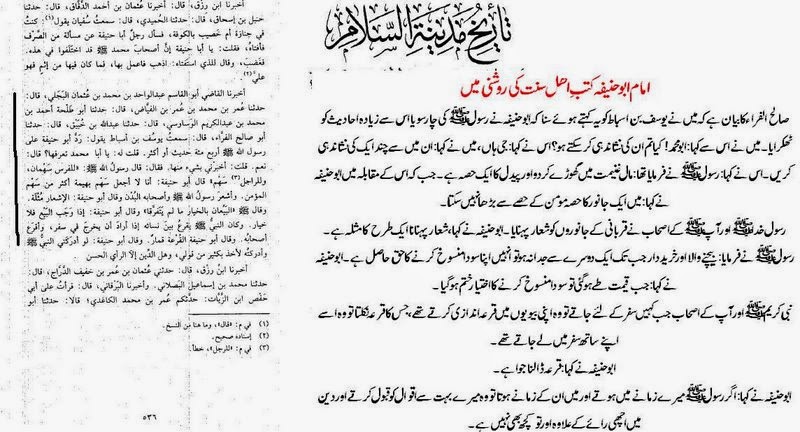 أخبرنا ابن رزق، قال: أخبرنا عثمان بن أحمد الدقاق، قال: حدثنا
حنبل بن إسحاق، قال: حدثنا الحميدي، قال: سمعت سفيان يقول(١): كنت
في جنازة أم خصيب بالكوفة، فسأل رجل أبا حنيفة عن مسألة من الصرف
فأفتاه، فقلت: يا أبا حنيفة إن أصحاب محمد ﷺ قد اختلفوا في هذه.
فغضب، وقال للذي استفتاه: اذهب فاعمل بها، فما كان فيها من إثم فهو
عليّ(٢).
أخبرنا القاضي أبو القاسم عبدالواحد بن محمد بن عثمان البجلي، قال:
حدثنا عمر بن محمد بن عمر بن الفياض، قال: حدثنا أبو طلحة أحمد بن
محمد بن عبدالكريم الوساوسي، قال: حدثنا عبدالله بن خبيق، قال: حدثنا
أبو صالح الفراء، قال: سمعت يوسف بن أسباط يقول: رد أبو حنيفة على
رسول الله ﷺ أربع مئة حديث أو أكثر. قلت له: يا أبا محمد تعرفها؟ قال:
نعم. قلت: أخبرني بشيء منها. فقال: قال رسول الله ﷺ: «للفرس سهمان،
وللراجل(٣) سهم» قال أبو حنيفة: أنا لا أجعل سهم بهيمة أكثر من سهم
المؤمن. وأشعر رسول الله ﷺ وأصحابه البدن وقال أبو حنيفة: الإشعار مثلة.
وقال ﷺ «البيعان بالخيار ما لم يتفرقا» وقال أبو حنيفة: إذا وجب البيع فلا
خيار. وكان النبي ﷺ يقرع بين نسائه إذا أراد أن يخرج في سفر، وأقرع
أصحابه. وقال أبو حنيفة القرعة قمار. وقال أبو حنيفة: لو أدركني النبي ﷺ
وأدركته لأخذ بكثير من قولي، وهل الدين إلا الرأي الحسن
أخبرنا ابن رزق، قال: حدثني عثمان بن عمر بن خفيف الدراج، قال:
حدثنا محمد بن إسماعيل البصلاني. وأخبرنا البرقاني، قال: قرأت على أبي
حفص ابن الزيات: حدثكم عمر بن محمد الكاغدي؛ قالا: حدثنا أبو
(١) في م: «قال»، وما هنا من النسخ.
(٢) إسناده صحيح.
(٣) في م: «للرجل»، خطأ.
٥٣٦
تاريخ مدينة السلام
امام ابو حنیفہ کتب اھل سنت کی روشنی میں
صالح الفراء کا بیان ہے کہ میں نے یوسف بن اسباط کو یہ کہتے ہوئے سنا کہ ابو حنیفہ نے رسول ﷺ کی چار سو یا اس سے زیادہ احادیث کو
ٹھکرایا۔ میں نے اس سے کہا: ابو محمد! کیا تم ان کی نشاندہی کر سکتے ہو؟ اس نے کہا: جی ہاں، میں نے کہا: ان میں سے چند ایک کی نشاندہی
کریں۔ اس نے کہا: رسول ﷺ نے فرمایا تھا: مال غنیمت میں گھوڑے کر دو اور پیدل کا ایک حصہ ہے۔ جب کہ اس کے مقابلہ میں ابو حنیفہ
نے کہا: میں ایک جانور کا حصہ مومن کے حصے سے بڑھا نہیں سکتا۔
رسول خدا ﷺ اور آپ ﷺ کے اصحاب نے قربانی کے جانوروں کو شعار پہنایا۔ ابو حنیفہ نے کہا، شعار پہنانا ایک طرح کا مثلہ ہے۔
رسول ﷺ نے فرمایا: بیچنے والا اور خریدار جب تک ایک دوسرے سے جدا نہ ہو تو انہیں اپنا سودا منسوخ کرنے کا حق حاصل ہے۔ ابو حنیفہ
نے کہا: جب قیمت طے ہوگئی تو سودا منسوخ کرنے کا اختیار ختم ہوگیا۔
نبی کریم ﷺ اور آپ کے اصحاب جب کہیں سفر کے لئے جاتے تو وہ اپنی بیویوں میں قرعہ اندازی کرتے تھے، جس کا قرعہ نکلتا تو وہ اسے
اپنے ساتھ سفر میں لے جاتے تھے۔
ابو حنیفہ نے کہا: قرعہ ڈالنا جوا ہے۔
ابو حنیفہ نے کہا: اگر رسول ﷺ میرے زمانے میں ہوتے اور میں ان کے زمانے ہوتا تو وہ میرے بہت سے اقوال کو قبول کرتے اور دین
میں اچھی رائے کے علاوہ اور تو کچھ بھی نہیں ہے۔